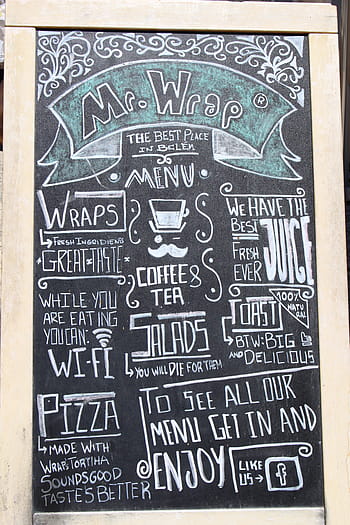 Mr. Wrap ®
THE BEST PLACE
IN BELÉM
MENU
WRAPS
FRESH INGRIDIENTS
GREAT TASTE
WHILE YOU
ARE EATING
YOU CAN:
WI-FI
PIZZA
MADE WITH
WRAP TORTIHA
SOUNDS GOOD
TASTE'S BETTER
COFFEE &
TEA
SALADS
YOU WILL DIE FOR THEM
WE HAVE THE
BEST
FRESH
EVER
JUICE
100%
NATURAL
TOAST
BTW: BIG
AND DELICIOUS
TO SEE ALL OUR
MENU GET IN AND
ENJOY
LIKE
US
f